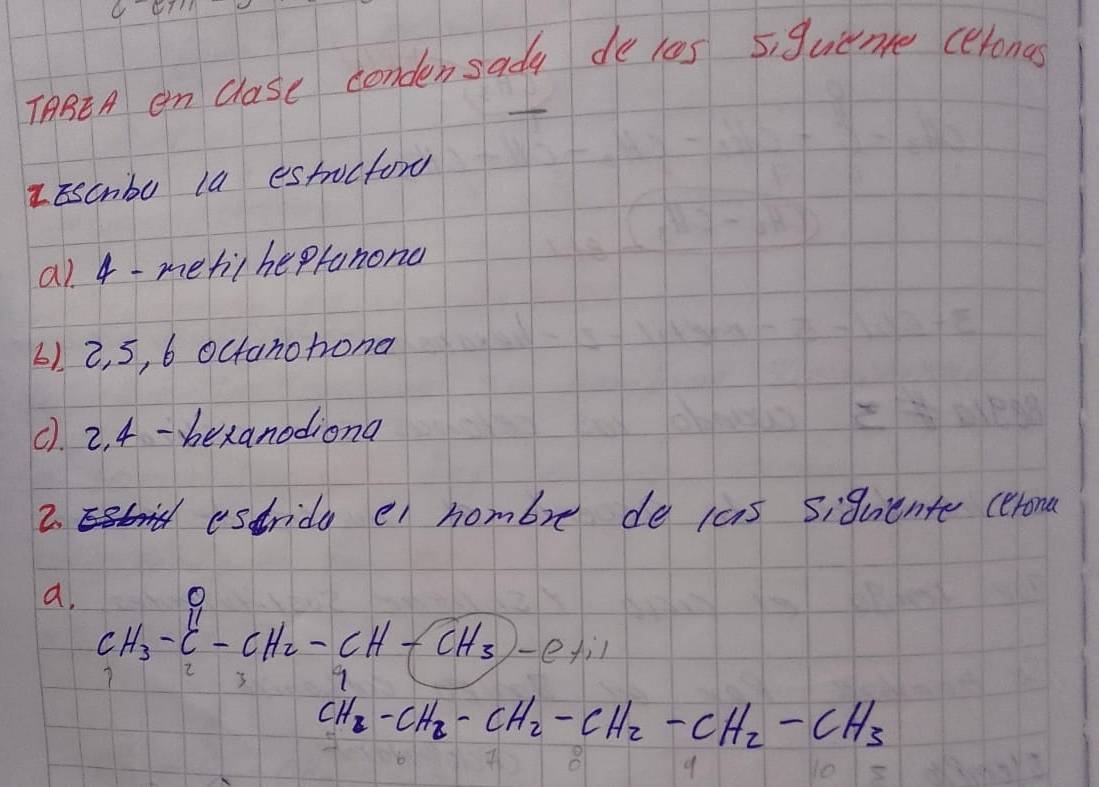 TAREA en clase condensada de las siguiente cetonas
1 Escriba la estructura
a). 4 - metil heptanona
b). 2,5,6 octanotrona
c). 2,4 - hexanodiona
2. escrida el nombre de las siguiente cetona
a.
O
CH3 - C - CH2 - CH - CH3 - etil
1 2 3 4
CH2 - CH2 - CH2 - CH2 - CH2 - CH3
6 7 8 9 10